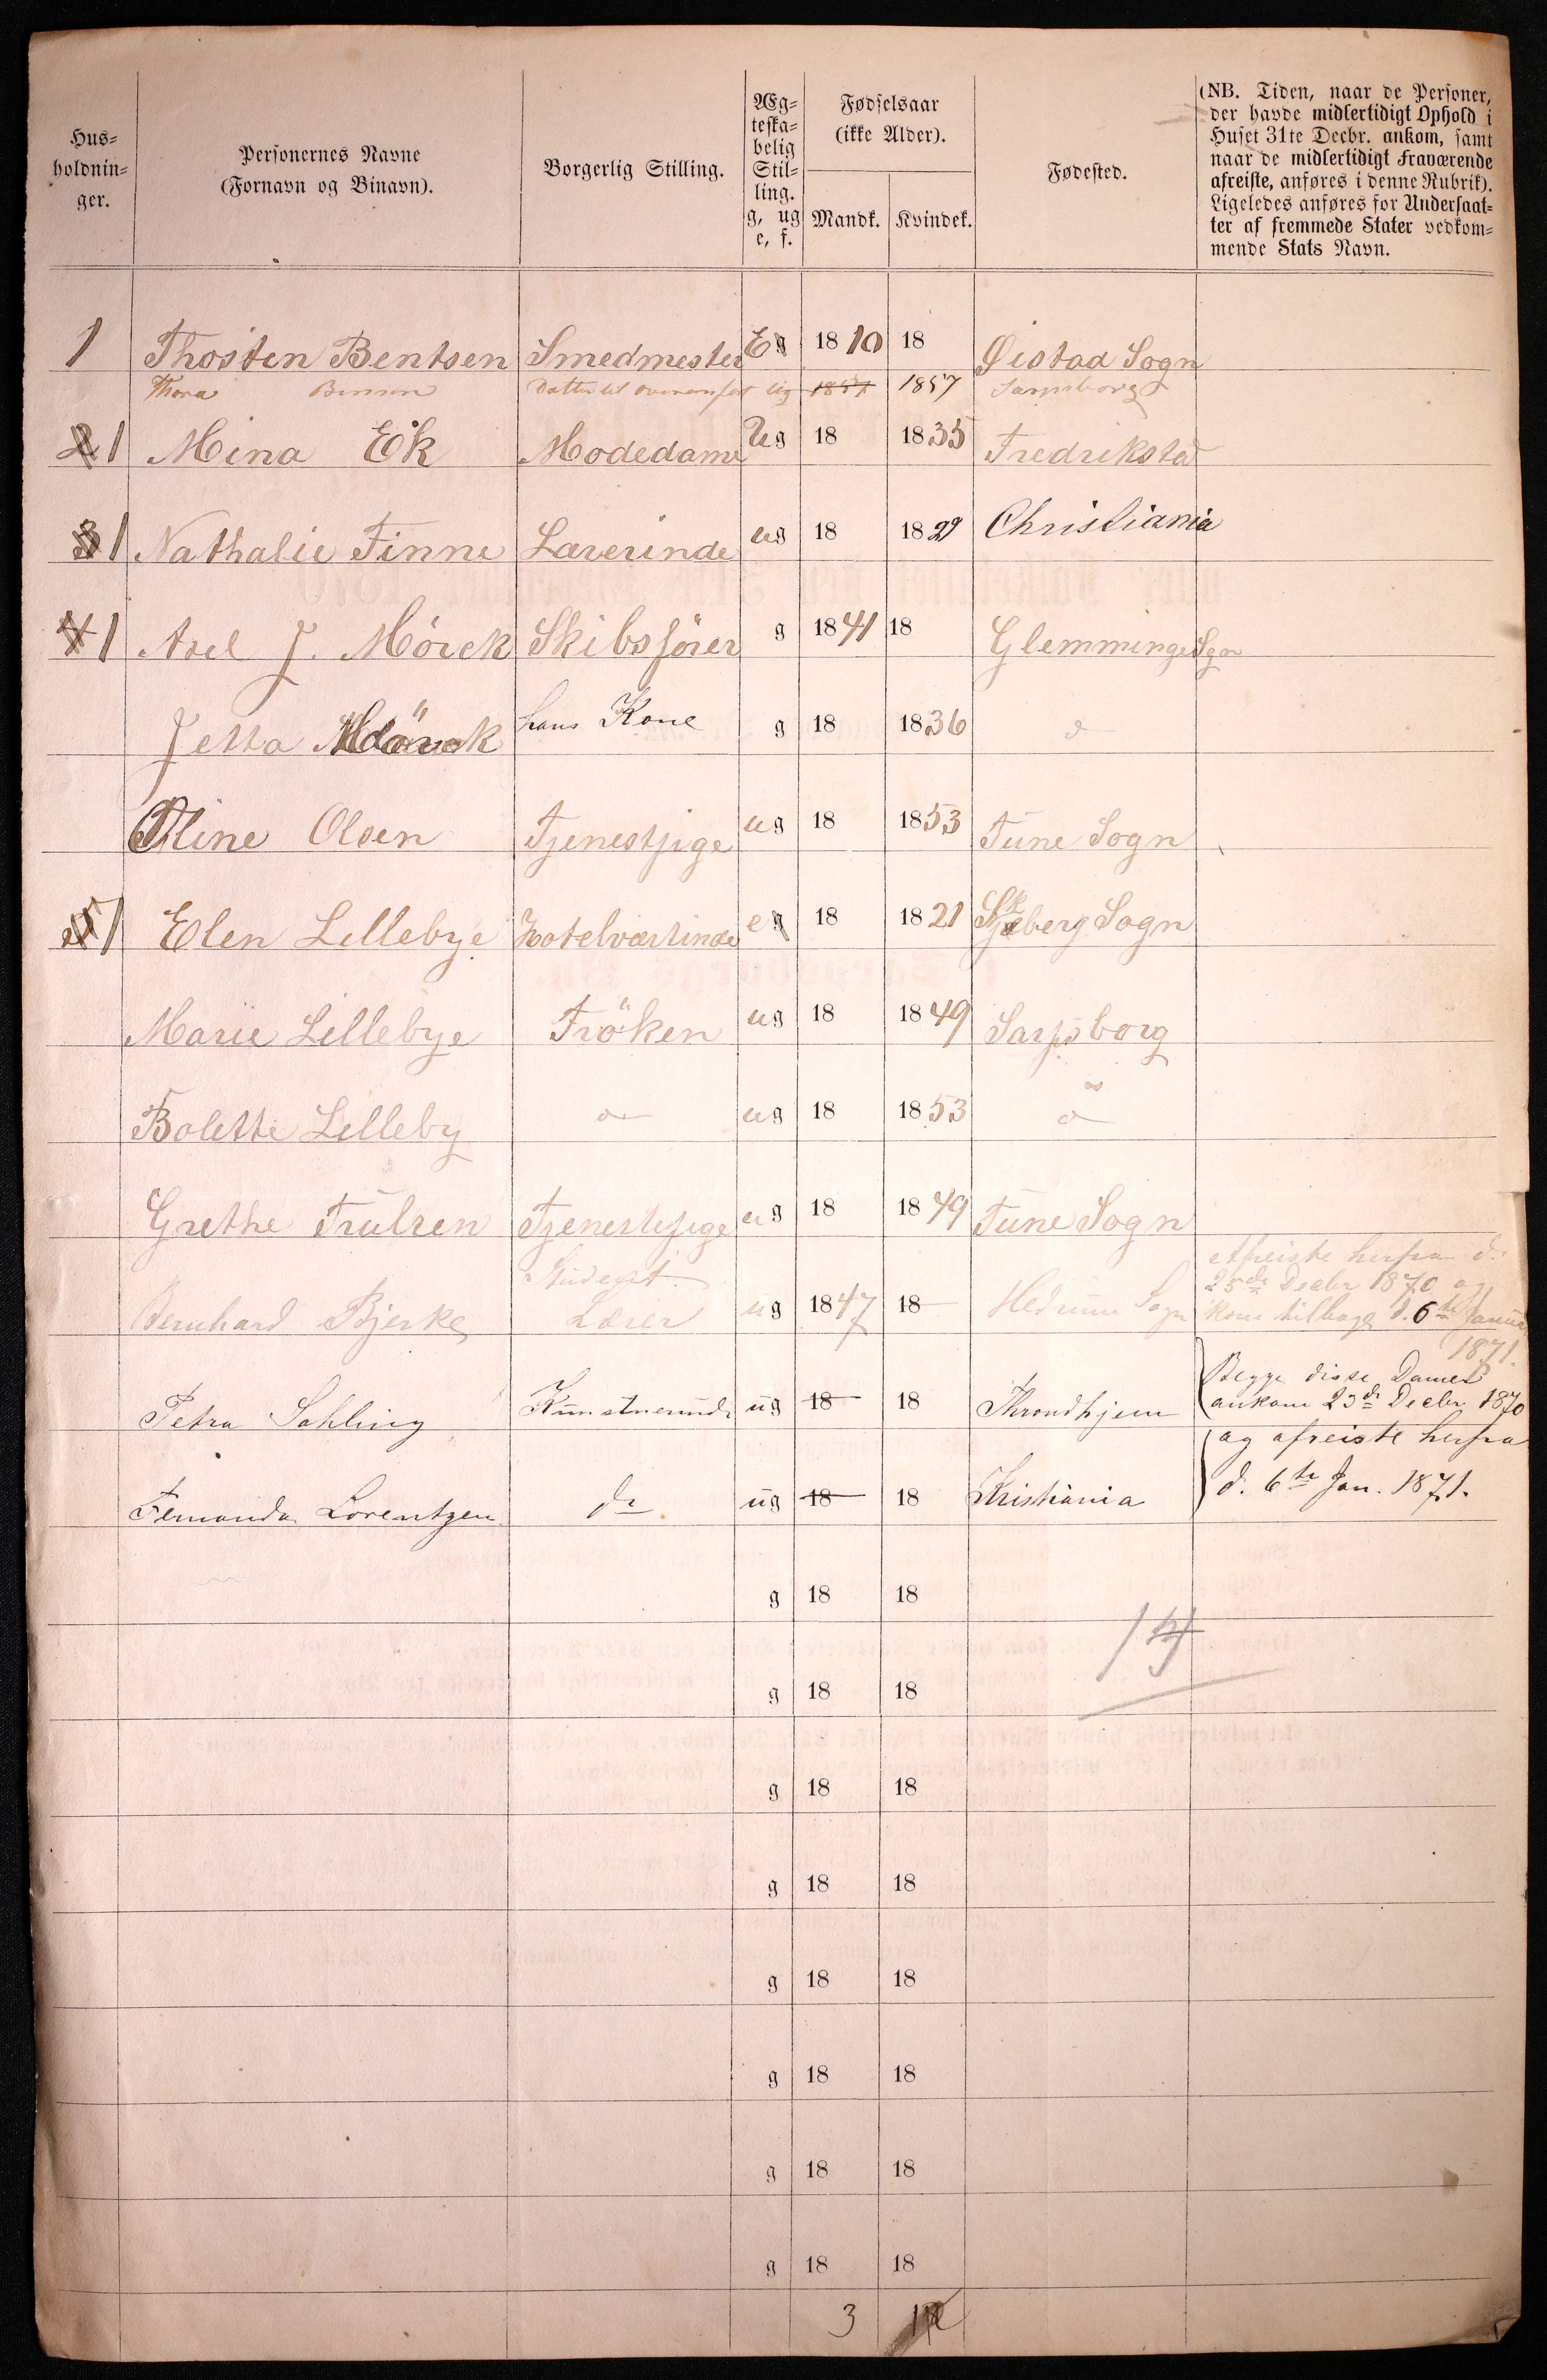 Hus-
holdnin-
ger.
Personernes Navne
(Fornavn og Binavn).
Borgerlig Stilling.
Æg-
teska-
belig
Stil-
ling.
g, ug
e, f.
Fødselsaar
(ikke Alder).
Mandk. Kvindek.
Fødested.
(NB. Tiden, naar de Personer,
der havde midlertidigt Ophold i
Huset 31te Decbr. ankom, samt
naar de midlertidigt Fraværende
afreiste, anføres i denne Rubrik).
Ligeledes anføres for Undersaat-
ter af fremmede Stater vedkom-
mende Stats Navn.
1 Thosten Bentsen Smedmester Eg 1810 18 Øistad Sogn
Thora Datter til ovenanført ug 1857 1857 Sarpsborg
2 1 Mina Ek Modedame Ug 18 1835 Fredrikstad
3 1 Nathalie Finne Lærerinde ug 18 1829 Christiania
4 1 Axel J. Mörck Skibsförer g 1841 18 Glemminge Sgn
Jetta Mörck hans Kone g 18 1836 d
Oline Olsen Tjenestpige ug 18 1853 Tune Sogn
5 1 Elen Lillebye Hotelværtinde eg 18 1821 Skjeberg Sogn
Marie Lillebye Fröken ug 18 1849 Sarpsborg
Bolette Lilleby d ug 18 1853 d
Grethe Trulsen Tjenestepige ug 18 1849 Tune Sogn
Afreiste herfra d.
Student.
25de Decbr 1870 og
Bernhard Bjerke Lærer ug 1847 18 Hedrum Sogn kom tilbage d. 6te Januar
1871.
Begge disse Damer
Petra Sohling Kunstnerinde ug 18 18 Throndhjem ankom 23de Decbr 1870
og afreiste herfra
Fernanda Lorentzen do ug 18 18 Kristiania d. 6te Jan. 1871.
g 18 18
14
g 18 18
g 18 18
g 18 18
g 18 18
g 18 18
g 18 18
g 18 18
3